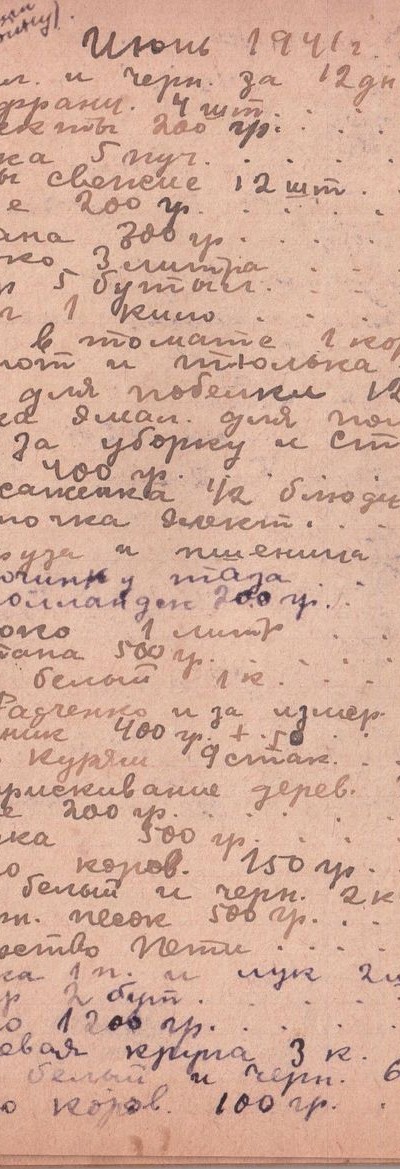 Июнь 1941 г.
л. и черн. за 12 дн
франц. 4 шт.
екты 200 гр.
ка 5 пуч.
ы свежие 12 шт.
е 200 гр.
ана 300 гр.
ко 3 литра
5 бутыл.
1 кило
в томате 1 кор
от и тюлька
для побелки 12
ка эмал. для по
за уборку и ст
400 гр.
саженка 1/2 блюд
почка элект.
руза и пшеница
очинку таза
олландск 200 гр.
око 1 литр
тана 500 гр.
белый 1 к.
Радченко и за измер.
ник 400 гр. + 50
курям 9 стак.
прискивание дерев.
е 200 гр.
ка 500 гр.
о коров. 150 гр.
белый и черн. 2 к
н. песок 500 гр.
рство Пети
ка 1 п. и лук 2
р 2 бут.
о 1200 гр.
евая крупа 3 к.
белый и черн. 6
о коров. 100 гр.